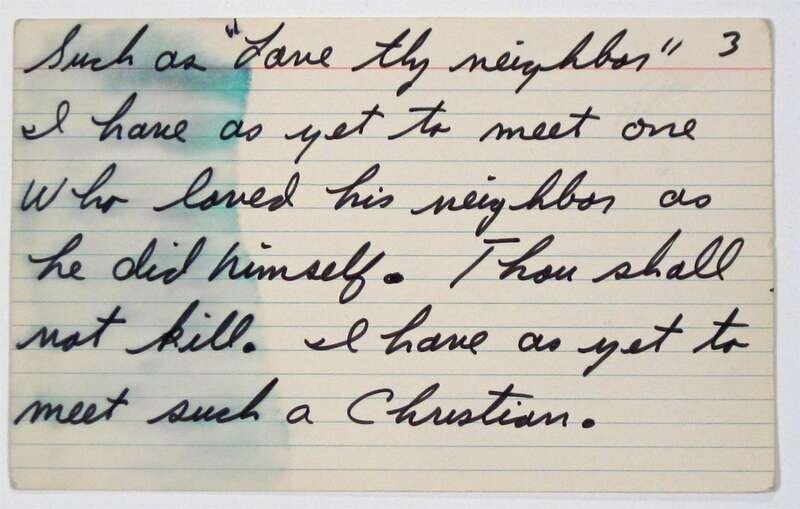 Such as "Love thy neighbor" 3
I have as yet to meet one
Who loved his neighbor as
he did himself. Thou shall
not kill. I have as yet to
meet such a Christian.